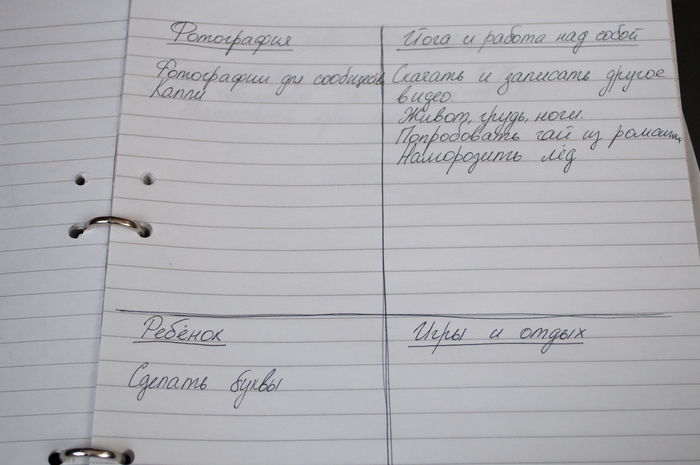 Фотография
Фотографии для сообществ
Капли
Йога и работа над собой
Скачать и записать другое
видео.
Живот, грудь, ноги.
Попробовать чай из ромашки
Наморозить лёд
Ребёнок
Сделать буквы
Игры и отдых